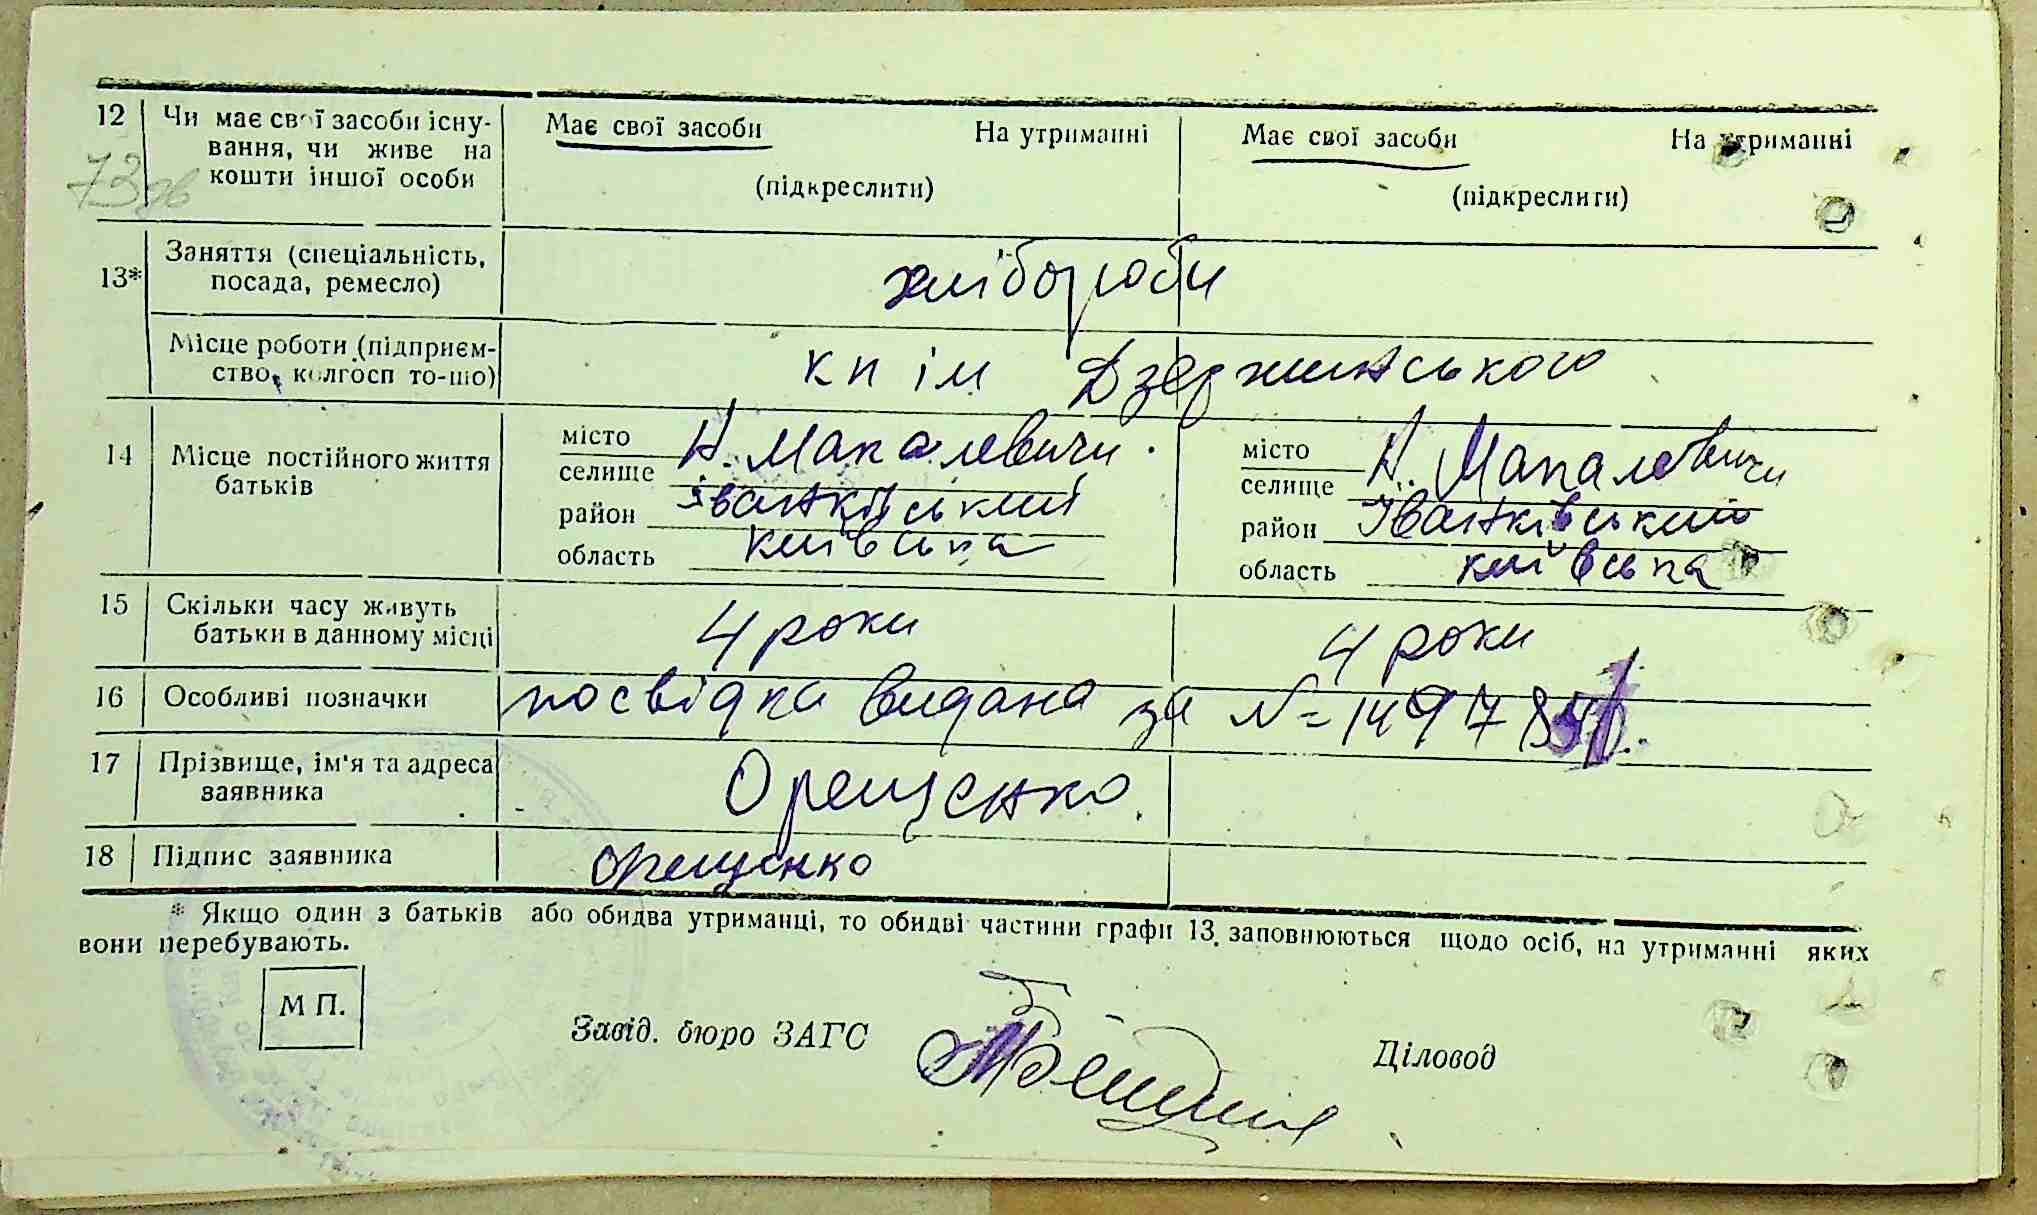 12 Чи має свої засоби існу-
вання, чи живе на
кошти іншої особи
Має свої засоби На утриманні
(підкреслити)
Має свої засоби На утриманні
(підкреслити)
73
13* Заняття (спеціальність,
посада, ремесло)
хлібороби
Місце роботи (підприєм-
ство, колгосп то-що)
кп ім Дзержинського
14 Місце постійного життя
батьків
місто
селище Н. Макалевичи
район Іванківський
область київська
місто
селище Н. Макалевичи
район Іванківський
область київська
15 Скільки часу живуть
батьки в данному місці
4 роки
4 роки
16 Особливі позначки
посвідка видана за №
17 Прізвище, ім'я та адреса
заявника
Орещенко.
18 Підпис заявника
Орещенко
* Якщо один з батьків або обидва утриманці, то обидві частини графи 13 заповнюються щодо осіб, на утриманні яких
вони перебувають.
М П.
Завід. бюро ЗАГС
Діловод